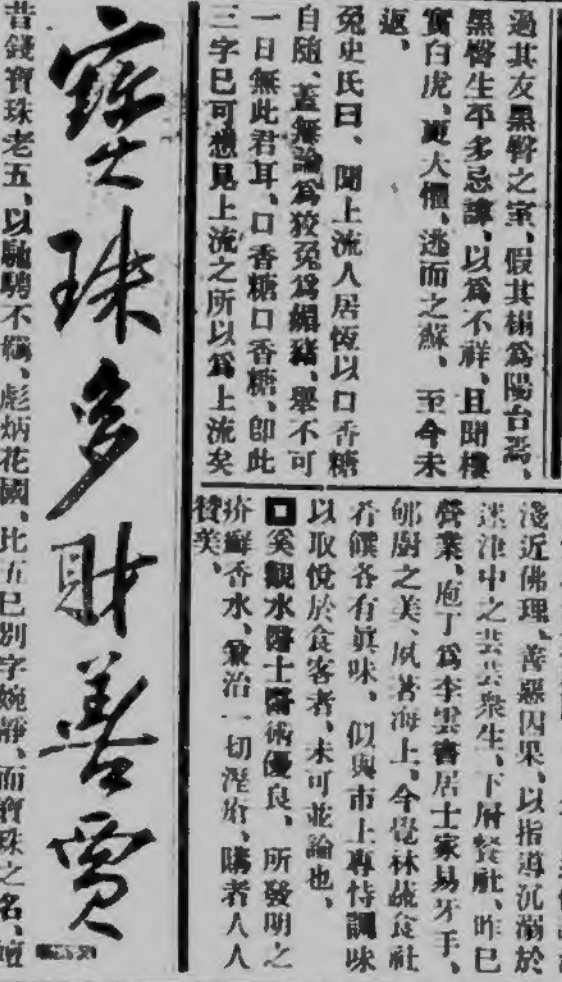 過其友黑臀之室、假其榻爲陽台焉、
黑臀生平多忌諱、以爲不祥、且聞樓
實白虎、更大懼、逃而之蘇、至今未
返、
兔史氏曰、聞上流人居恆以口香糖
自隨、蓋無論爲狡兔爲媚豬、舉不可
一日無此君耳、口香糖口香糖、卽此
三字已可想見上流之所以爲上流矣
淺近佛理、善惡因果、以指導沉溺於
迷津中之芸芸衆生、下層餐社、昨已
營業、庖丁爲李雲書居士家易牙手、
郇廚之美、夙著海上、今覺林蔬食社
肴饌各有眞味、似與市上專恃調味
以取悅於食客者、未可並論也、
□奚觀水醫士醫術優良、所發明之
疥癬香水、兼治一切溼疥、購者人人
贊美、
寶珠多財善賈
昔錢寶珠老五、以馳騁不羈、彪炳花國、比五已別字婉靜、而寶珠之名、